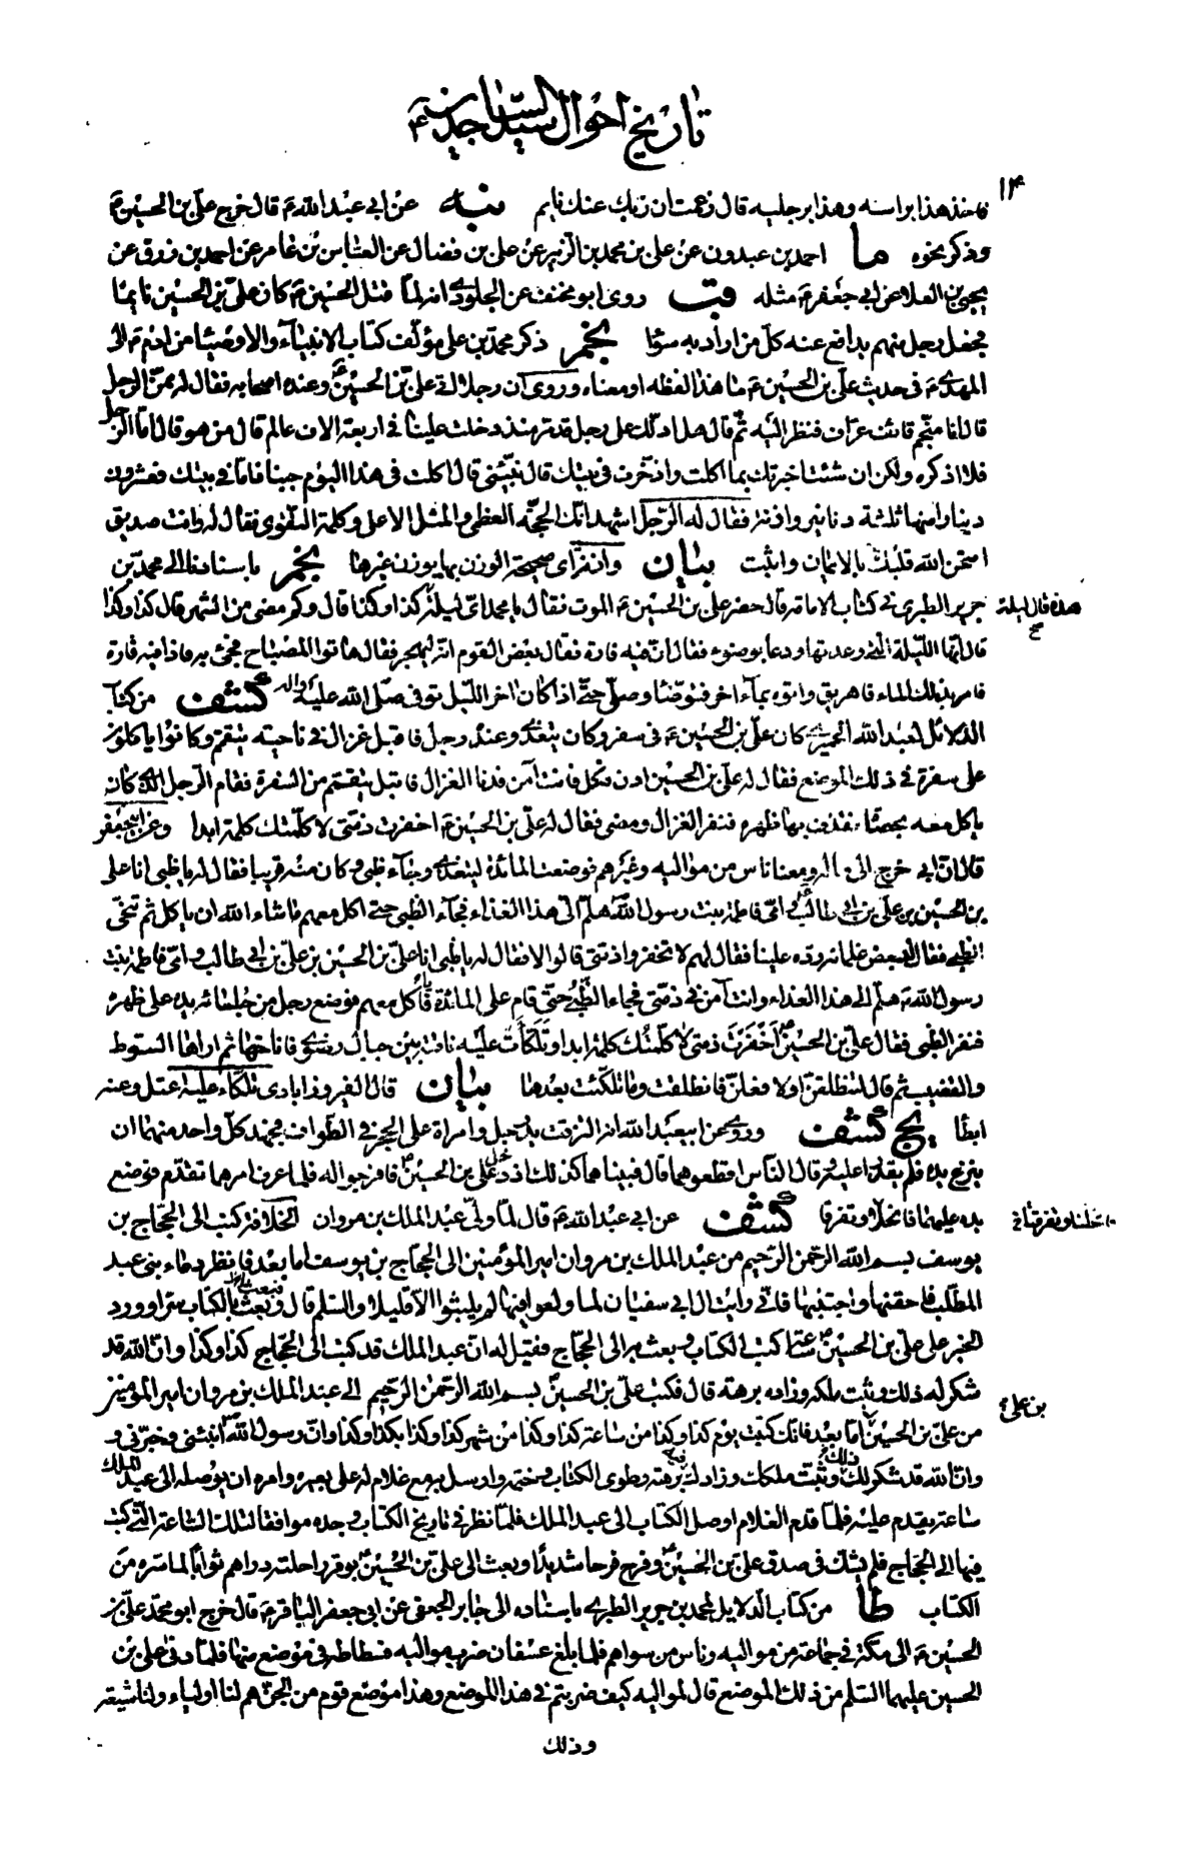 تاريخ احوال سيد الساجدين ع
١٤
فاخذ هذا براسه وهذا برجليه قال زعمت ان ربك عنك نايم نبه عن ابي عبد الله ع قال خرج علي بن الحسين ع
وذكر نحوه ما احمد بن عبدون عن علي بن محمد بن الزبير عن علي بن فضال عن العباس بن عامر عن احمد بن زرق عن
يحيى بن العلا عن ابي جعفر ع مثله قب روى ابو مخنف عن الجلودي انه لما قتل الحسين ع كان علي بن الحسين نائما
فجعل رجل منهم يدافع عنه كل من اراد به سوءا نجم ذكر محمد بن علي مؤلف كتاب الانبياء والاوصياء من ادم ع الى
المهدي ع في حديث علي بن الحسين ع ما هذا لفظه او معناه وروى ان رجلا اتى علي بن الحسين ع وعنده اصحابه فقال له ممن الرجل
قال انا منجم قائف عراف فنظر اليه ثم قال هل ادلك على رجل قد مر منذ دخلت علينا في اربعة الاف عالم قال من هو قال اما الرجل
فلا اذكره ولكن ان شئت اخبرتك بما اكلت وادخرت في بيتك قال نبئني قال اكلت في هذا اليوم جبنا فاما في بيتك فعشرون
دينارا منها ثلثة دنانير وازنة فقال له الرجل اشهد انك الحجة العظمى والمثل الاعلى وكلمة التقوى فقال له وانت صديق
امتحن الله قلبك بالايمان واثبت بيان وازنة اي صحيحة الوزن بها يوزن غيرها نجم باسنادنا الى محمد بن
جرير الطبري في كتاب الامامة قال حضر علي بن الحسين ع الموت فقال يا محمد اي ليلة كذا وكذا قال وكم مضى من الشهر قال كذا وكذا
هذه قال ليلة خ
قال انها الليلة التي وعدتها ودعا بوضوء فقال ان فيه فارة فقال بعض القوم انه ليهجر فقال هاتوا المصباح فجئ به فاذا فيه فارة
فامر بذلك الماء فاهريق واتوه بماء اخر فتوضا وصلى حتى اذا كان اخر الليل توفي صلى الله عليه واله كشف من كتاب
الدلائل لعبد الله الحميري كان علي بن الحسين ع في سفر وكان يتغدى وعنده رجل فاقبل غزال في ناحيته يتقمم وكانوا ياكلون
على سفرة في ذلك الموضع فقال له علي بن الحسين ادن فكل فانت آمن فدنا الغزال فاقبل يتقمم من السفرة فقام الرجل الذي كان
ياكل معه بحصاة فقذف بها ظهره فنفر الغزال ومضى فقال له علي بن الحسين ع اخفرت ذمتي لا كلمتك كلمة ابدا وعن ابي جعفر
قال ان ابي خرج الى ماله ومعنا ناس من مواليه وغيرهم فوضعت المائدة ليتغدى وجاء ظبي وكان منه قريبا فقال له يا ظبي انا علي
بن الحسين بن علي بن ابي طالب وامي فاطمة بنت رسول الله ص هلم الى هذا الغذاء فجاء الظبي حتى اكل معهم ما شاء الله ان ياكل ثم تنحى
الظبي فقال له بعض غلمانه رده علينا فقال لهم لا تخفروا ذمتي قالوا لا فقال له يا ظبي انا علي بن الحسين بن علي بن ابي طالب وامي فاطمة بنت
رسول الله ص هلم الى هذا الغذاء وانت آمن في ذمتي فجاء الظبي حتى قام على المائدة فاكل معهم فوضع رجل من جلسائه يده على ظهره
فنفر الظبي فقال علي بن الحسين ع اخفرت ذمتي لا كلمتك كلمة ابدا وتلكأت عليه ناقته بين جبال رضوى فاناخها ثم اراها السوط
والقضيب ثم قال لتنطلقن او لافعلن فانطلقت وما تلكئت بعدها بيان قال الفيروزابادي تلكأ عليه اعتل وعنه
ابطأ يج كشف وروي عن ابي عبد الله انه التزقت يد رجل وامراة على الحجر في الطواف فجهد كل واحد منهما ان
ينزع يده فلم يقدرا عليه وقال الناس اقطعوهما قال فبينا هما كذلك اذ دخل علي بن الحسين ع فافرجوا له فلما عرف امرهما تقدم فوضع
يده عليهما فانحلا وتفرقا كشف عن ابي عبد الله ع قال لما ولي عبد الملك بن مروان الخلافة كتب الى الحجاج بن
يوسف بسم الله الرحمن الرحيم من عبد الملك بن مروان امير المؤمنين الى الحجاج بن يوسف اما بعد فانظر دماء بني عبد
المطلب فاحقنها واجتنبها فاني رايت ال ابي سفيان لما ولعوا فيها لم يلبثوا الا قليلا والسلم قال وبعث بالكتاب سرا وورد
الخبر على علي بن الحسين ع ساعة كتب الكتاب وبعث به الى الحجاج فقيل له ان عبد الملك قد كتب الى الحجاج كذا وكذا وان الله قد
شكر له ذلك وثبت ملكه وزاده برهة قال فكتب علي بن الحسين ع بسم الله الرحمن الرحيم الى عبد الملك بن مروان امير المؤمنين
بن علي ع
من علي بن الحسين اما بعد فانك كتبت يوم كذا وكذا من ساعة كذا وكذا من شهر كذا وكذا بكذا وكذا وان رسول الله ص انبئني وخبرني و
وان الله قد شكر لك ذلك وثبت ملكك وزادك فيه برهة وطوى الكتاب وختمه وارسل به مع غلام له على بعيره وامره ان يوصله الى عبد الملك
ساعة يقدم عليه فلما قدم الغلام اوصل الكتاب الى عبد الملك فلما نظر في تاريخ الكتاب وجده موافقا لتلك الساعة التي كتب
فيها الى الحجاج فلم يشك في صدق علي بن الحسين ع وفرح فرحا شديدا وبعث الى علي بن الحسين ع بوقر راحلته دراهم ثوابا لما سره من
الكتاب طا من كتاب الدلايل لمحمد بن جرير الطبري باسناده الى جابر الجعفي عن ابي جعفر الباقر ع قال خرج ابو محمد علي بن
الحسين ع الى مكة في جماعة من مواليه وناس من سواهم فلما بلغ عسفان ضرب مواليه فسطاطه في موضع منها فلما دنى علي بن
الحسين عليهما السلم من ذلك الموضع قال لمواليه كيف ضربتم في هذا الموضع وهذا موضع قوم من الجن هم لنا اولياء ولنا شيعة
وذلك